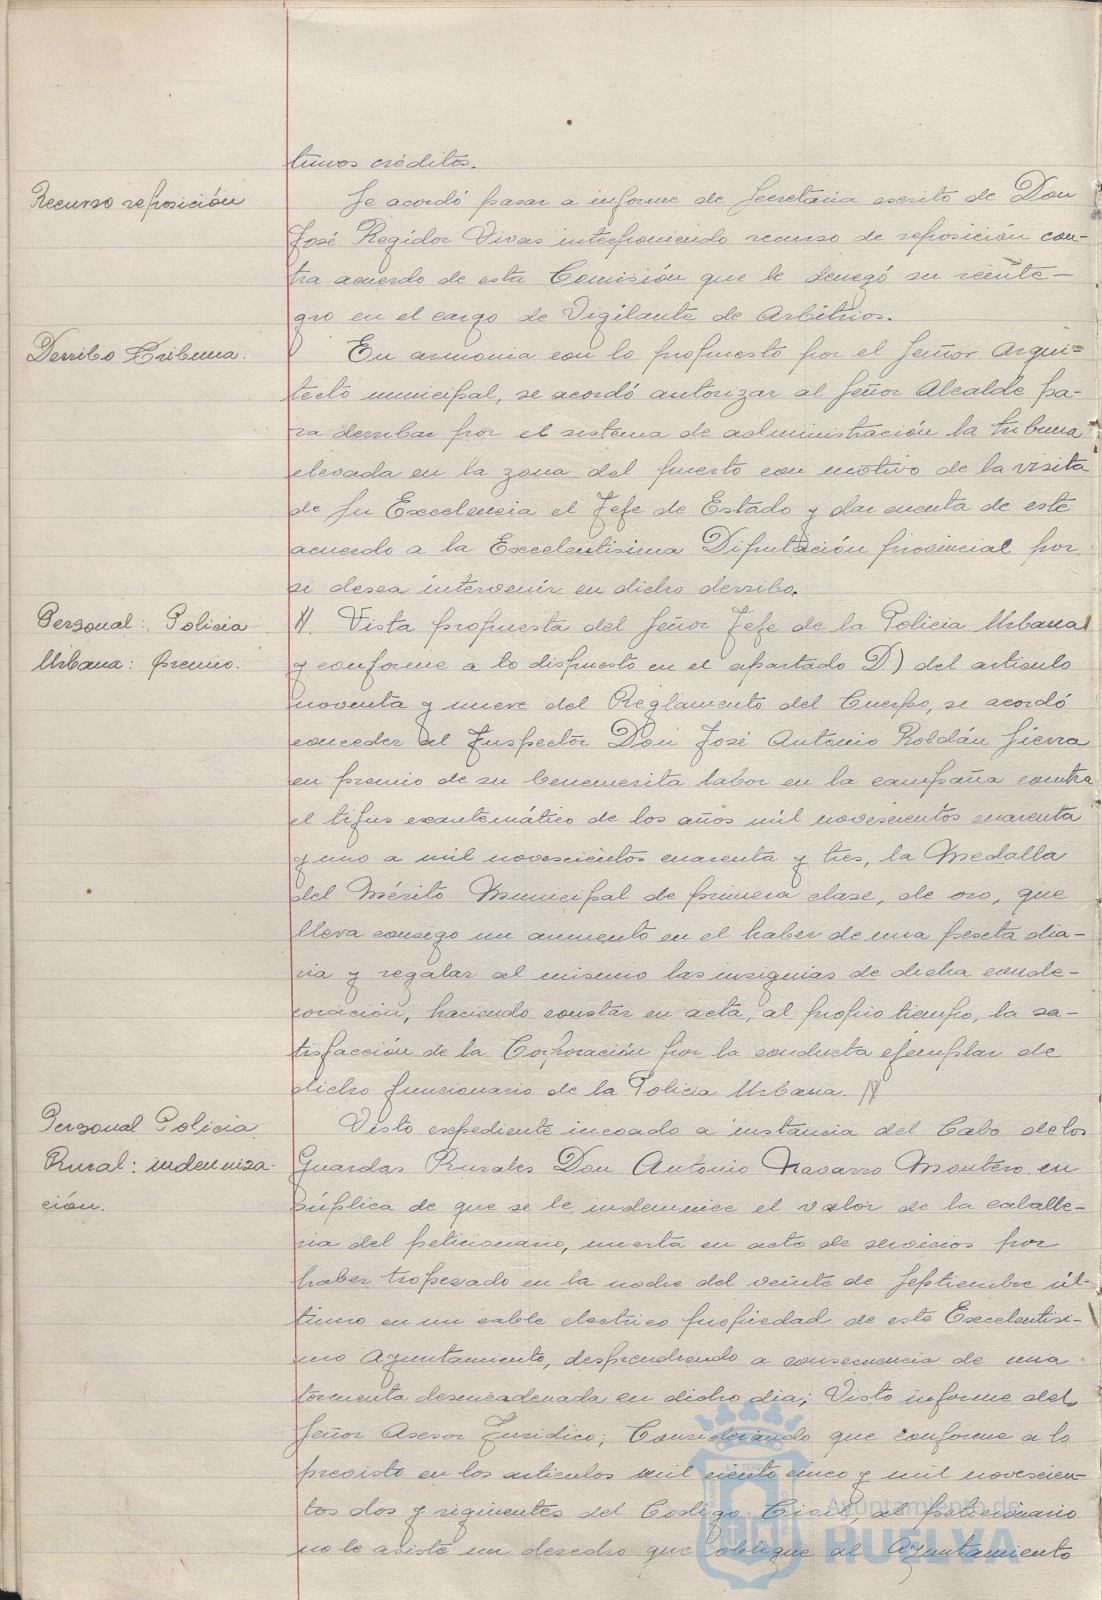 timos créditos.
Recurso reposición
Se acordó pasar a informe de Secretaria escrito de Don
José Regidor Vivas interponiendo recurso de reposición con-
tra acuerdo de esta Comisión que le denegó su reinte-
gro en el cargo de Vigilante de Arbitrios.
Derribo Tribuna.
En armonia con lo propuesto por el Señor Arqui-
tecto municipal, se acordó autorizar al Señor Alcalde pa-
ra derribar por el sistema de administración la tribuna
elevada en la zona del puerto con motivo de la visita
de Su Excelencia el Jefe de Estado y dar cuenta de este
acuerdo a la Excelentisima Diputación provincial por
si desea intervenir en dicho derribo.
Personal: Policia
Urbana: premio.
Vista propuesta del Señor Jefe de la Policia Urbana
y conforme a lo dispuesto en el apartado D) del articulo
noventa y nueve del Reglamento del Cuerpo, se acordó
conceder al Inspector Don José Antonio Roldán Sierra
en premio de su benemerita labor en la campaña contra
el tifus exantemático de los años mil novescientos cuarenta
y uno a mil novescientos cuarenta y tres, la Medalla
del Mérito Municipal de primera clase, de oro, que
lleva consigo un aumento en el haber de una peseta dia-
ria y regalar al mismo las insignias de dicha conde-
coración, haciendo constar en acta, al propio tiempo, la sa-
tisfacción de la Corporación por la conducta ejemplar de
dicho funcionario de la Policia Urbana.
Personal Policia
Rural: indemniza-
ción.
Visto expediente incoado a instancia del Cabo de los
Guardas Rurales Don Antonio Navarro Montero en
súplica de que se le indemnice el valor de la caballe-
ria del peticionario, muerta en acto de servicios por
haber tropezado en la noche del veinte de Septiembre úl-
timo en un cable electrico propiedad de este Excelentisi-
mo Ayuntamiento, desprendiendo a consecuencia de una
tormenta desencadenada en dicho dia; Visto informe del
Señor Asesor Juridico; Considerando que conforme a lo
previsto en los articulos mil ciento cinco y mil novescien-
tos dos y siguientes del Codigo Civil, al peticionario
no le asiste un derecho que obligue al Ayuntamiento
Ayuntamiento de
HUELVA